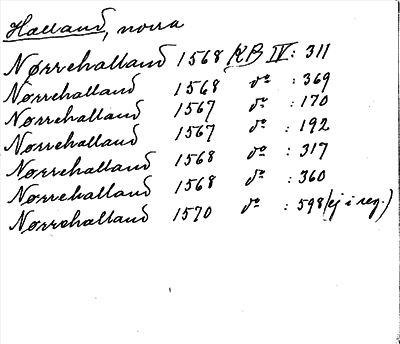 Halland, norra
Nørrehalland 1568 KB IV: 311
Nørrehalland 1568 dº : 369
Nørrehalland 1567 dº : 170
Nørrehalland 1567 dº : 192
Nørrehalland 1568 dº : 317
Nørrehalland 1568 dº : 360
Nørrehalland 1570 dº : 598 (ej i reg.)